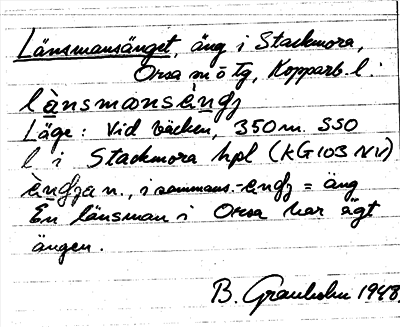 Länsmansänget, äng i Stackmora,
Orsa sn o tg, Kopparb. l.
lànsmansèngj
Läge: Vid bäcken, 350 m. SSO
l i Stackmora hpl (KG 103 NV)
èngjan., i sammans. -engj = äng
En länsman i Orsa har ägt
ängen.
B. Granholm 1948.